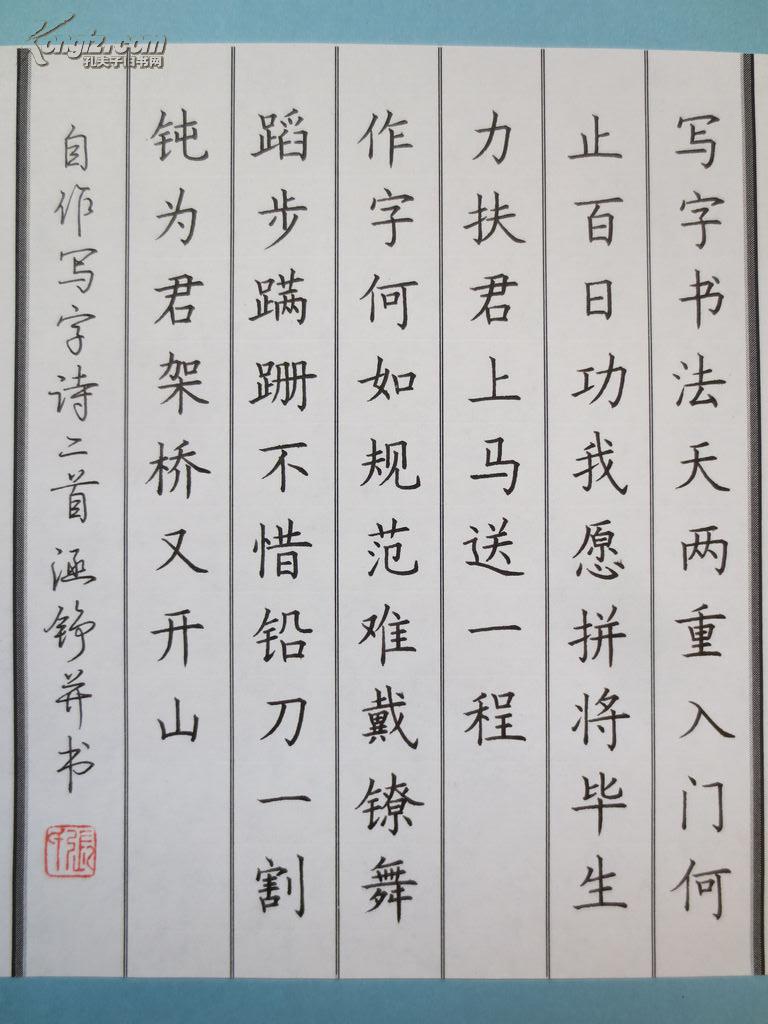 写字书法天两重入门何
止百日功我愿拼将毕生
力扶君上马送一程
作字何如规范难戴镣舞
蹈步蹒跚不惜铅刀一割
钝为君架桥又开山
自作写字诗二首 涵铮并书
Kongfz.com
孔夫子旧书网